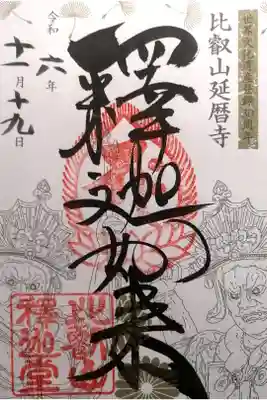 世界文化遺産登録三十周年
比叡山延暦寺
釋迦如来
令和六年
十一月十九日
比叡山
釋迦堂